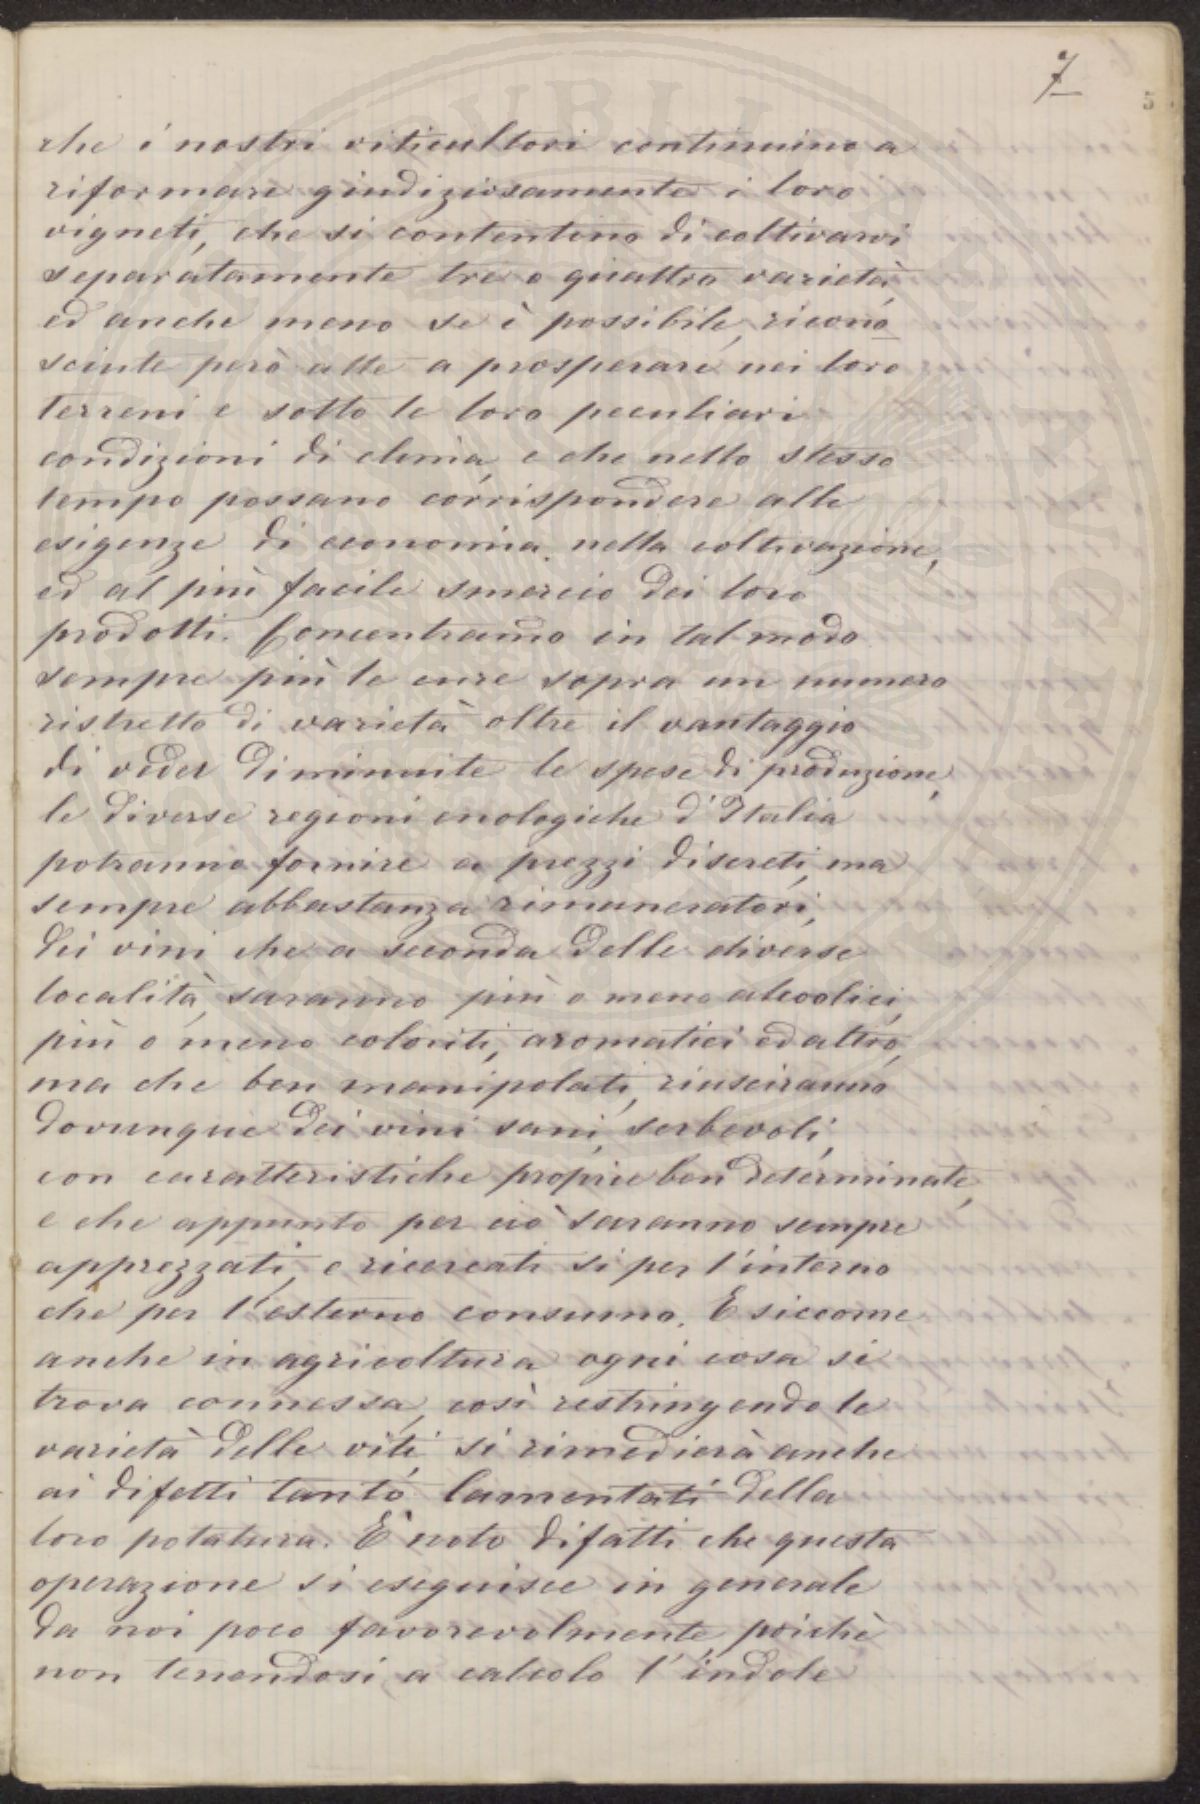 7
5
che i nostri viticultori continuino a
riformare giudiziosamente i loro
vigneti, che si contentino di coltivarvi
separatamente tre o quattro varietà,
ed anche meno se è possibile, ricono
sciute però atte a prosperare nei loro
terreni e sotto le loro peculiari
condizioni di clima, e che nello stesso
tempo possano corrispondere alle
esigenze di economia nella coltivazione,
ed al più facile smercio dei loro
prodotti. Concentrando in tal modo
sempre più le cure sopra un numero
ristretto di varietà oltre il vantaggio
di veder diminuite le spese di produzione,
le diverse regioni enologiche d'Italia
potranno fornire a prezzi discreti, ma
sempre abbastanza rimuneratori,
dei vini che a seconda delle diverse
località, saranno più o meno alcoolici,
più o meno coloriti, aromatici ed altro,
ma che ben manipolati, riusciranno
dovunque dei vini sani, serbevoli,
con caratteristiche proprie ben determinate,
e che appunto per ciò saranno sempre
apprezzati, e ricercati sì per l'interno
che per l'esterno consumo. E siccome
anche in agricoltura ogni cosa si
trova connessa, così restringendo le
varietà delle viti, si rimedierà anche
ai difetti tanto lamentati della
loro potatura. E' noto difatti che questa
operazione si eseguisce in generale
da noi poco favorevolmente, poichè
non tenendosi a calcolo l'indole